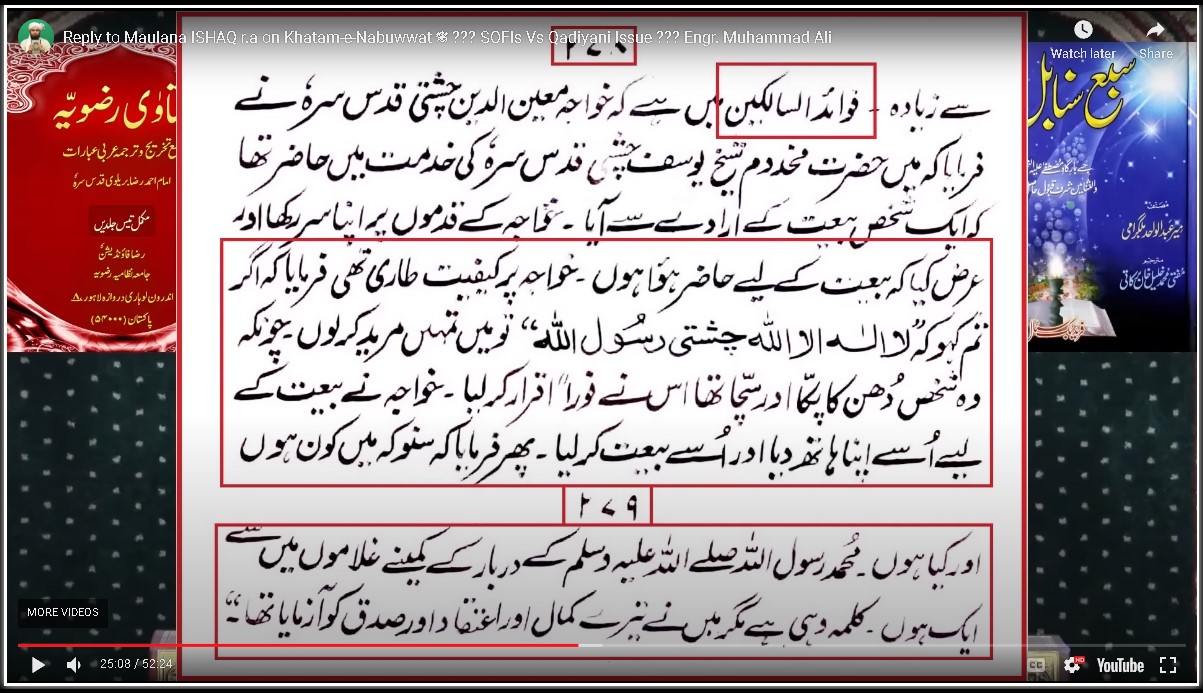 Reply to Maulana ISHAQ r.a on Khatam-e-Nabuwwat ??? SOFIs Vs Qadiyani Issue ??? Engr. Muhammad Ali
Watch later
Share
۲۷۸
سے زیادہ ۔ فوائد السالکین میں ہے کہ خواجہ معین الدین چشتی قدس سرہٗ نے
فرمایا کہ میں حضرت مخدوم شیخ یوسف چشتی قدس سرہٗ کی خدمت میں حاضر تھا
کہ ایک شخص بیعت کے ارادے سے آیا ۔ خواجہ کے قدموں پر اپنا سر رکھا اور
عرض کیا کہ بیعت کے لیے حاضر ہوا ہوں ۔ خواجہ پر کیفیت طاری تھی فرمایا کہ اگر
تم کہو کہ ”لا الٰہ الا اللہ چشتی رسول اللہ“ تو میں تمہیں مرید کرلوں ۔ چونکہ
وہ شخص دُھن کا پکّا اور سچّا تھا اس نے فوراً اقرار کرلیا ۔ خواجہ نے بیعت کے
لیے اُسے اپنا ہاتھ دیا اور اُسے بیعت کرلیا ۔ پھر فرمایا کہ سنو کہ میں کون ہوں
۲۷۹
اور کیا ہوں ۔ محمد رسول اللہ صلے اللہ علیہ وسلم کے دربار کے کمینے غلاموں میں سے
ایک ہوں ۔ کلمہ وہی ہے مگر میں نے تیرے کمال اور اعتقاد اور صدق کو آزمایا تھا ۔“
فتاوٰی رضویہ
مع تخریج و ترجمہ عربی عبارات
امام احمد رضا بریلوی قدس سرہٗ
مکمل تیس جلدیں
رضا فاؤنڈیشن
جامعہ نظامیہ رضویہ
اندرون لوہاری دروازہ لاہور ۸
پاکستان (۵۴۰۰۰)
سبع سنابل
مصنف
میر عبدالواحد بلگرامی
مترجم
مفتی محمد خلیل خان برکاتی
MORE VIDEOS
25:08 / 52:24
CC
HD
YouTube